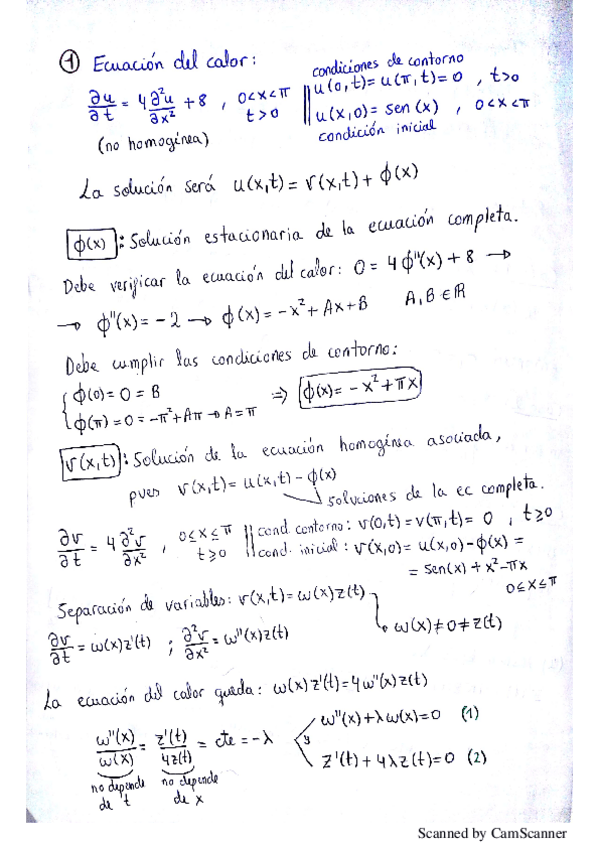 ① Ecuación del calor:
∂u/∂t = 4 ∂²u/∂x² + 8 , 0<x<π
t>0
(no homogénea)
condiciones de contorno
u(0,t)= u(π,t)= 0 , t>0
u(x,0)= sen(x) , 0<x<π
condición inicial
La solución será u(x,t)= v(x,t)+ ϕ(x)
ϕ(x) : Solución estacionaria de la ecuación completa.
Debe verificar la ecuación del calor: 0= 4ϕ''(x)+8 →
→ ϕ''(x)= -2 → ϕ(x)= -x²+Ax+B A,B∈ℝ
Debe cumplir las condiciones de contorno:
ϕ(0)=0=B
ϕ(π)=0=-π²+Aπ → A=π
⇒ ϕ(x)= -x²+πx
v(x,t) : Solución de la ecuación homogénea asociada,
pues v(x,t)= u(x,t)-ϕ(x)
soluciones de la ec completa.
∂v/∂t = 4 ∂²v/∂x² , 0≤x≤π
t≥0
cond contorno: v(0,t)=v(π,t)= 0 , t≥0
cond. inicial : v(x,0)= u(x,0)-ϕ(x)=
= sen(x)+x²-πx
0≤x≤π
Separación de variables: v(x,t)=ω(x)z(t)
ω(x)≠0≠z(t)
∂v/∂t = ω(x)z'(t) ; ∂²v/∂x² = ω''(x)z(t)
La ecuación del calor queda: ω(x)z'(t)=4ω''(x)z(t)
ω''(x)/ω(x) = z'(t)/4z(t) = cte = -λ
y
ω''(x)+λω(x)=0 (1)
z'(t)+4λz(t)=0 (2)
no depende de t
no depende de x
Scanned by CamScanner